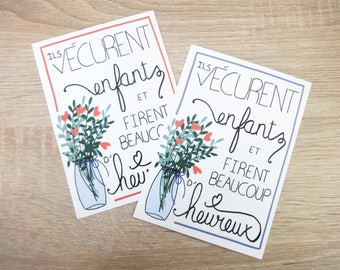 ILS
VÉCURENT
enfants
ET
FIRENT
BEAUCOUP
D'heu
ILS
VÉCURENT
enfants
ET
FIRENT
BEAUCOUP
D'heureux